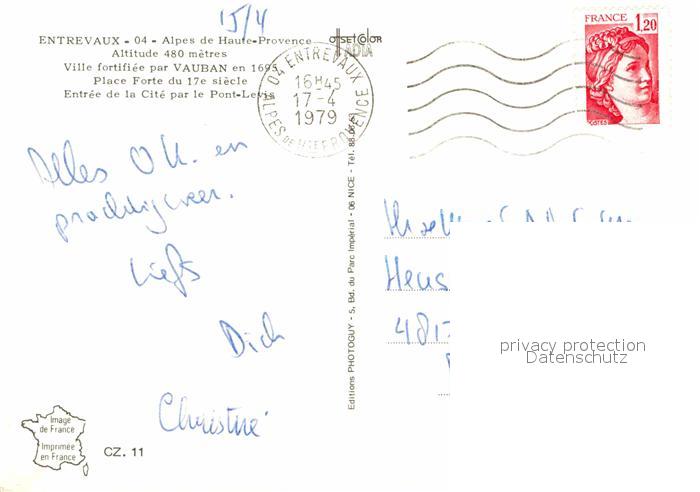 15/4
ENTREVAUX - 04 - Alpes de Haute-Provence
Altitude 480 mètres
Ville fortifiée par VAUBAN en 1695
Place Forte du 17e siècle
Entrée de la Cité par le Pont-Levis
OFFSET COLOR
04 ENTREVAUX
16H45
17-4
1979
ALPES DE HTE PROVENCE
FRANCE 1,20
Alles O.K. en
prachtig weer.
Liefs
Dick
Christné
Editions PHOTOGUY - 5, Bd. du Parc Impérial - 06 NICE - Tél.
481
privacy protection
Datenschutz
Image
de France
Imprimée
en France
CZ. 11